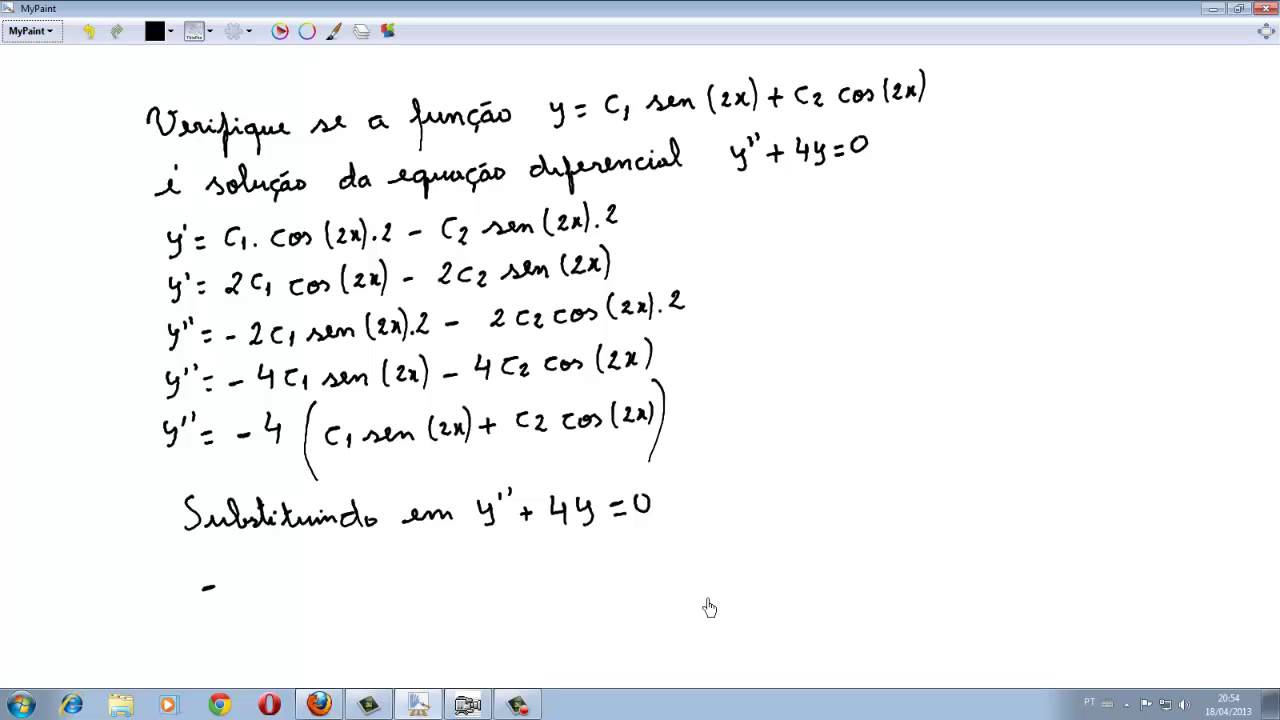 MyPaint
MyPaint
Verifique se a função y = C1 sen (2x) + C2 cos (2x)
é solução da equação diferencial y'' + 4y = 0
y' = C1 . cos (2x) . 2 - C2 sen (2x) . 2
y' = 2C1 cos (2x) - 2C2 sen (2x)
y'' = - 2C1 sen (2x) . 2 - 2C2 cos (2x) . 2
y'' = - 4C1 sen (2x) - 4C2 cos (2x)
y'' = - 4 ( C1 sen (2x) + C2 cos (2x) )
Substituindo em y'' + 4y = 0
-
PT
20:54
18/04/2013